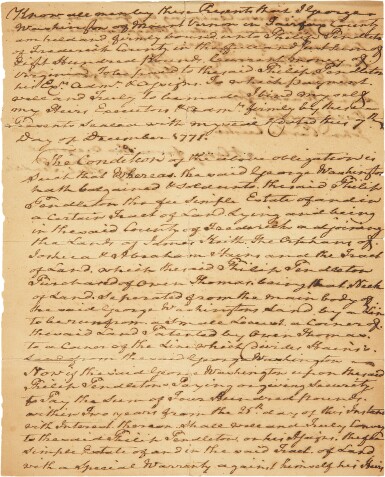 Know all men by these Presents that I George
Washington of Mount Vernon in Fairfax County
am held and firmly bound unto Philip Pendleton
of Frederick County in the
Fifteen Hundred pounds Current money of
Virginia to be paid to the said Philip Pendleton
his
and truly to be I bind myself
my Heirs Executors & firmly by these
Presents Sealed with my Seale & dated this 7th
Day of December 1771.
The Condition of the above obligation is
such that Whereas the said George Washington
hath bargained & sold unto the said Philip
Pendleton the fee Simple Estate of and in
a Certain Tract of Land Lying and being
in the said County of Frederick adjoining
the Lands of James Keith, the Orphans of
Joshua & Abraham and the Tract
of Land which the said Philip Pendleton
Purchased of Owen Thomas, being that Neck
of Land Seperated from the main body of
the said George Washingtons Land by a line
to be run from a corner of
the said Land Patented by Owen Thomas
to a Corner of the Line which divides
Land from the said George Washington
Now if the said George Washington upon the said
Philip Pendleton's Paying or giving Security
to Pay the Sum of Four Hundred pounds
within Two years from the 25th day of this Instant
with Interest thereon shall well and Truly Convey
to the said Philip Pendleton or his Assigns the fee
simple Estate of and in the said Tract of Land
with a Special Warranty against himself his Heirs